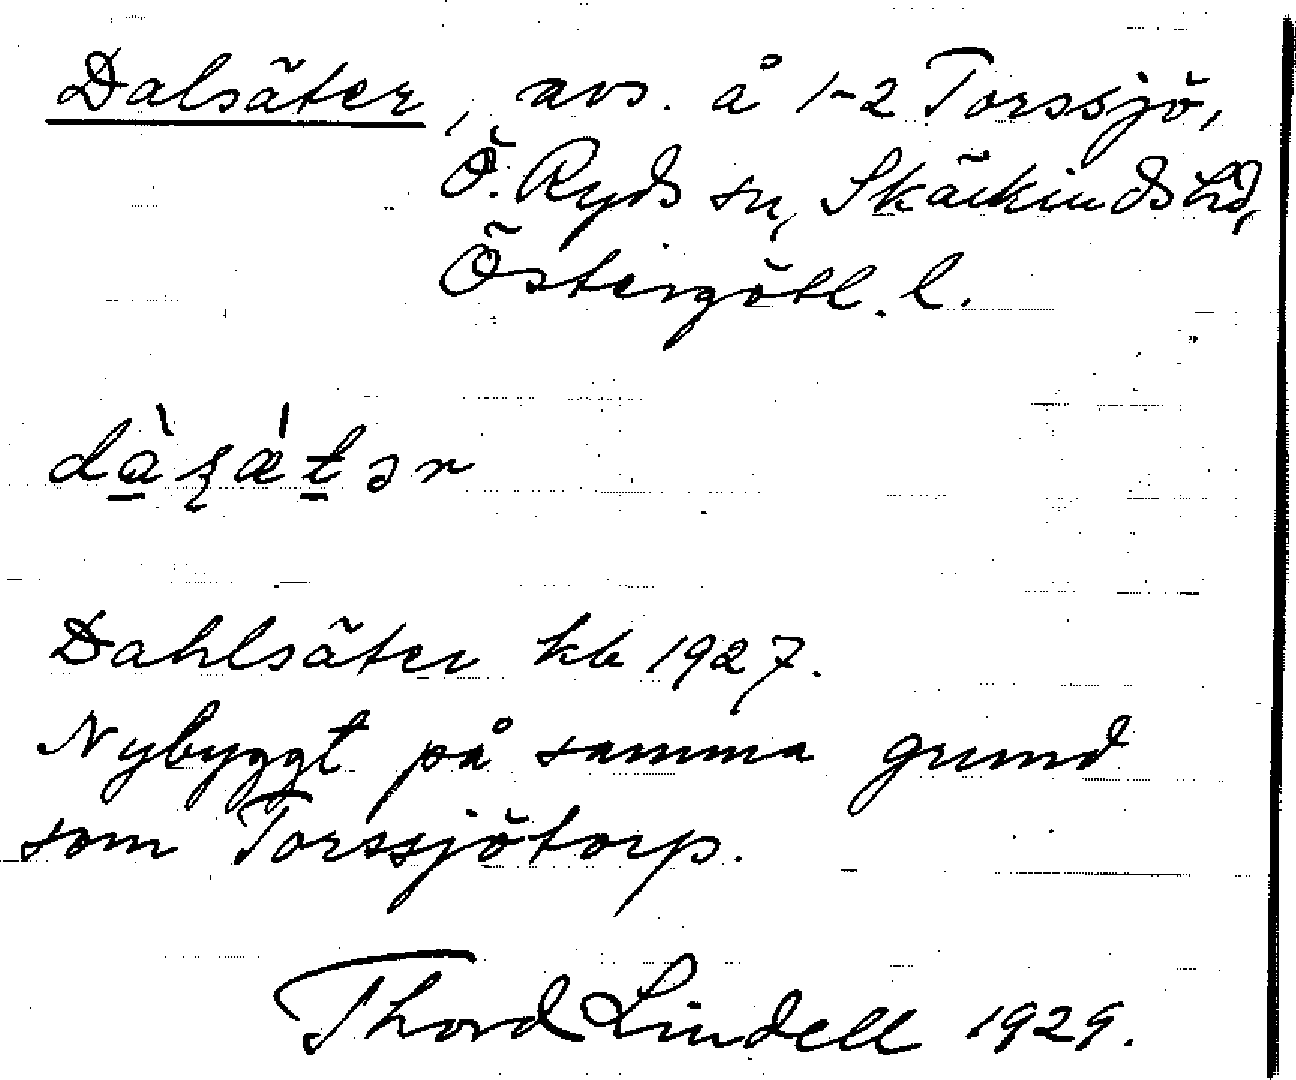 Dalsäter, avs. å 1-2 Torssjö,
Ö. Ryds sn, Skärkinds hd,
Östergötl. l.
dàʂǽtər
Dahlsäter kb 1927.
Nybyggt på samma grund
som Torssjötorp.
Thord Lindell 1929.